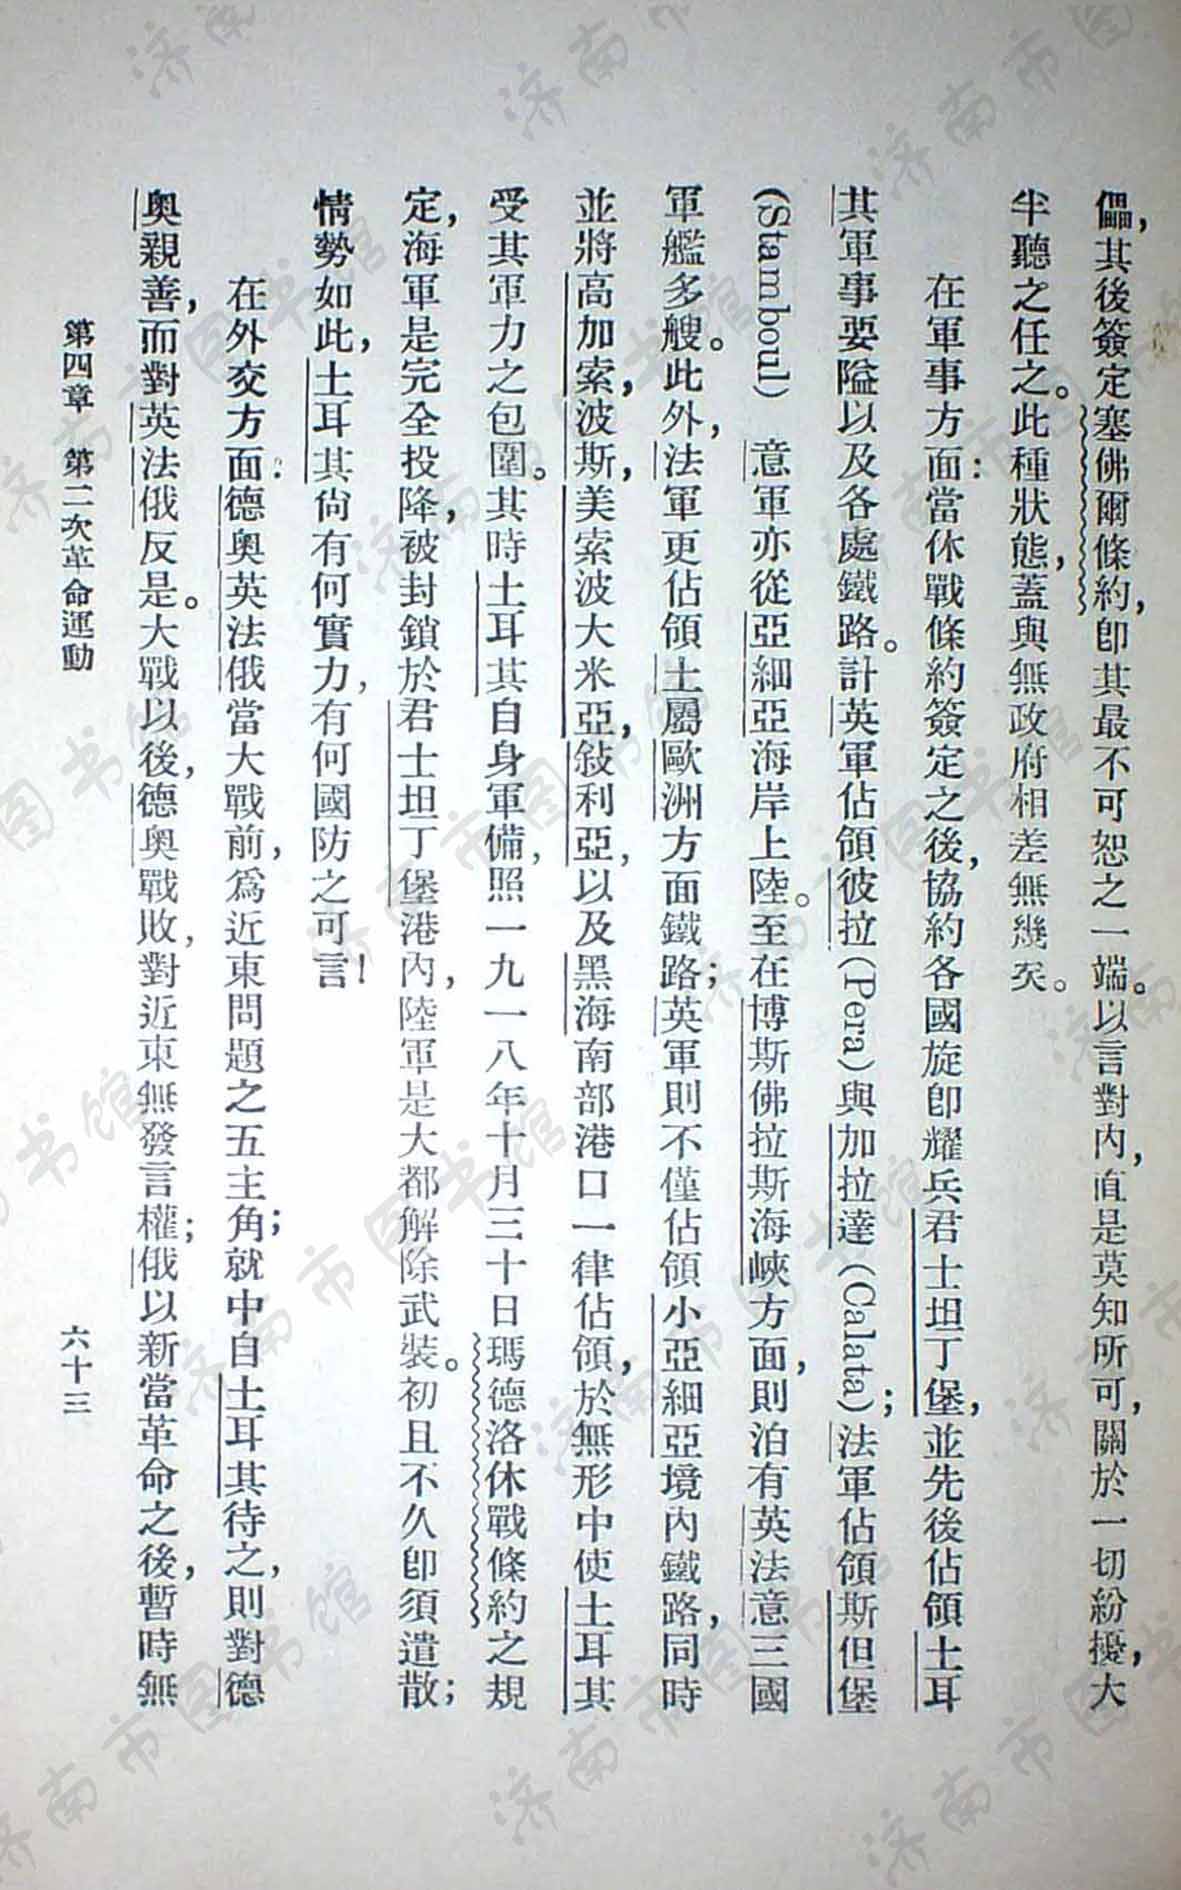 儡，其後簽定塞佛爾條約，卽其最不可恕之一端。以言對內，直是莫知所可，關於一切紛擾，大
半聽之任之。此種狀態，蓋與無政府相差無幾矣。
在軍事方面：當休戰條約簽定之後，協約各國旋卽耀兵君士坦丁堡，並先後佔領土耳
其軍事要隘以及各處鐵路。計英軍佔領彼拉(Pera)與加拉達(Calata)；法軍佔領斯但堡
(Stamboul)意軍亦從亞細亞海岸上陸。至在博斯佛拉斯海峽方面，則泊有英法意三國
軍艦多艘。此外，法軍更佔領土屬歐洲方面鐵路；英軍則不僅佔領小亞細亞境內鐵路，同時
並將高加索，波斯，美索波大米亞，敍利亞，以及黑海南部港口一律佔領，於無形中使土耳其
受其軍力之包圍。其時土耳其自身軍備，照一九一八年十月三十日瑪德洛休戰條約之規
定，海軍是完全投降，被封鎖於君士坦丁堡港內，陸軍是大都解除武裝。初且不久卽須遣散；
情勢如此，土耳其尙有何實力，有何國防之可言！
在外交方面：德奧英法俄當大戰前，爲近東問題之五主角；就中自土耳其待之，則對德
奧親善，而對英法俄反是。大戰以後，德奧戰敗，對近東無發言權；俄以新當革命之後，暫時無
第四章 第二次革命運動 六十三
济南市图书馆